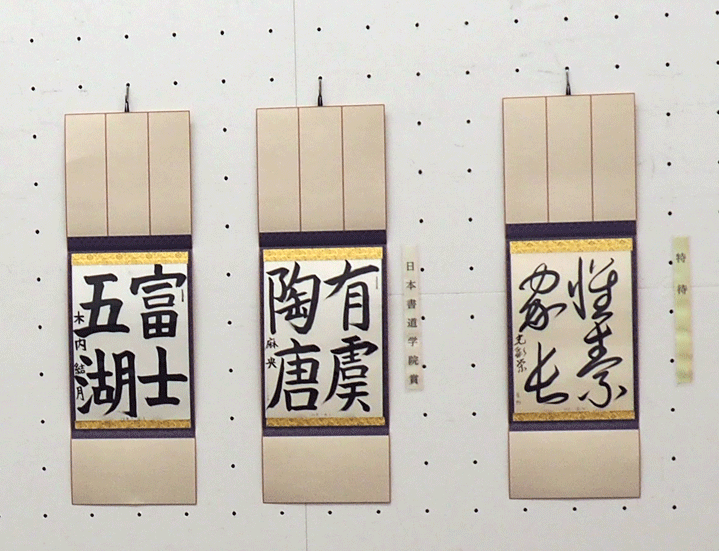 富士
五湖
木内結月
有虞
陶唐
麻央
日本書道学院賞
懐素
家長
特待